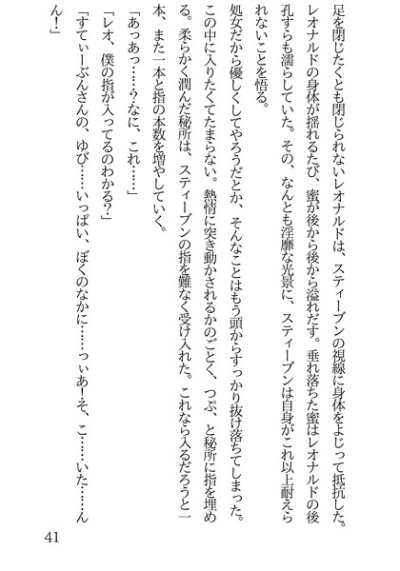 足を閉じたくとも閉じられないレオナルドは、スティーブンの視線に身体をよじって抵抗した。
レオナルドの身体が揺れるたび、蜜が後から後から溢れだす。垂れ落ちた蜜はレオナルドの後
孔すらも濡らしていた。その、なんとも淫靡な光景に、スティーブンは自身がこれ以上耐えら
れないことを悟る。
処女だから優しくしてやろうだとか、そんなことはもう頭からすっかり抜け落ちてしまった。
この中に入りたくてたまらない。熱情に突き動かされるかのごとく、つぷ、と秘所に指を埋め
る。柔らかく潤んだ秘所は、スティーブンの指を難なく受け入れた。これなら入るだろうと一
本、また一本と指の本数を増やしていく。
「あっあっ……？なに、これ……」
「レオ、僕の指が入ってるのわかる？」
「すてぃーぶんさんの、ゆび……いっぱい、ぼくのなかに……っぃあ！そ、こ……いた……ん
ん！」
41